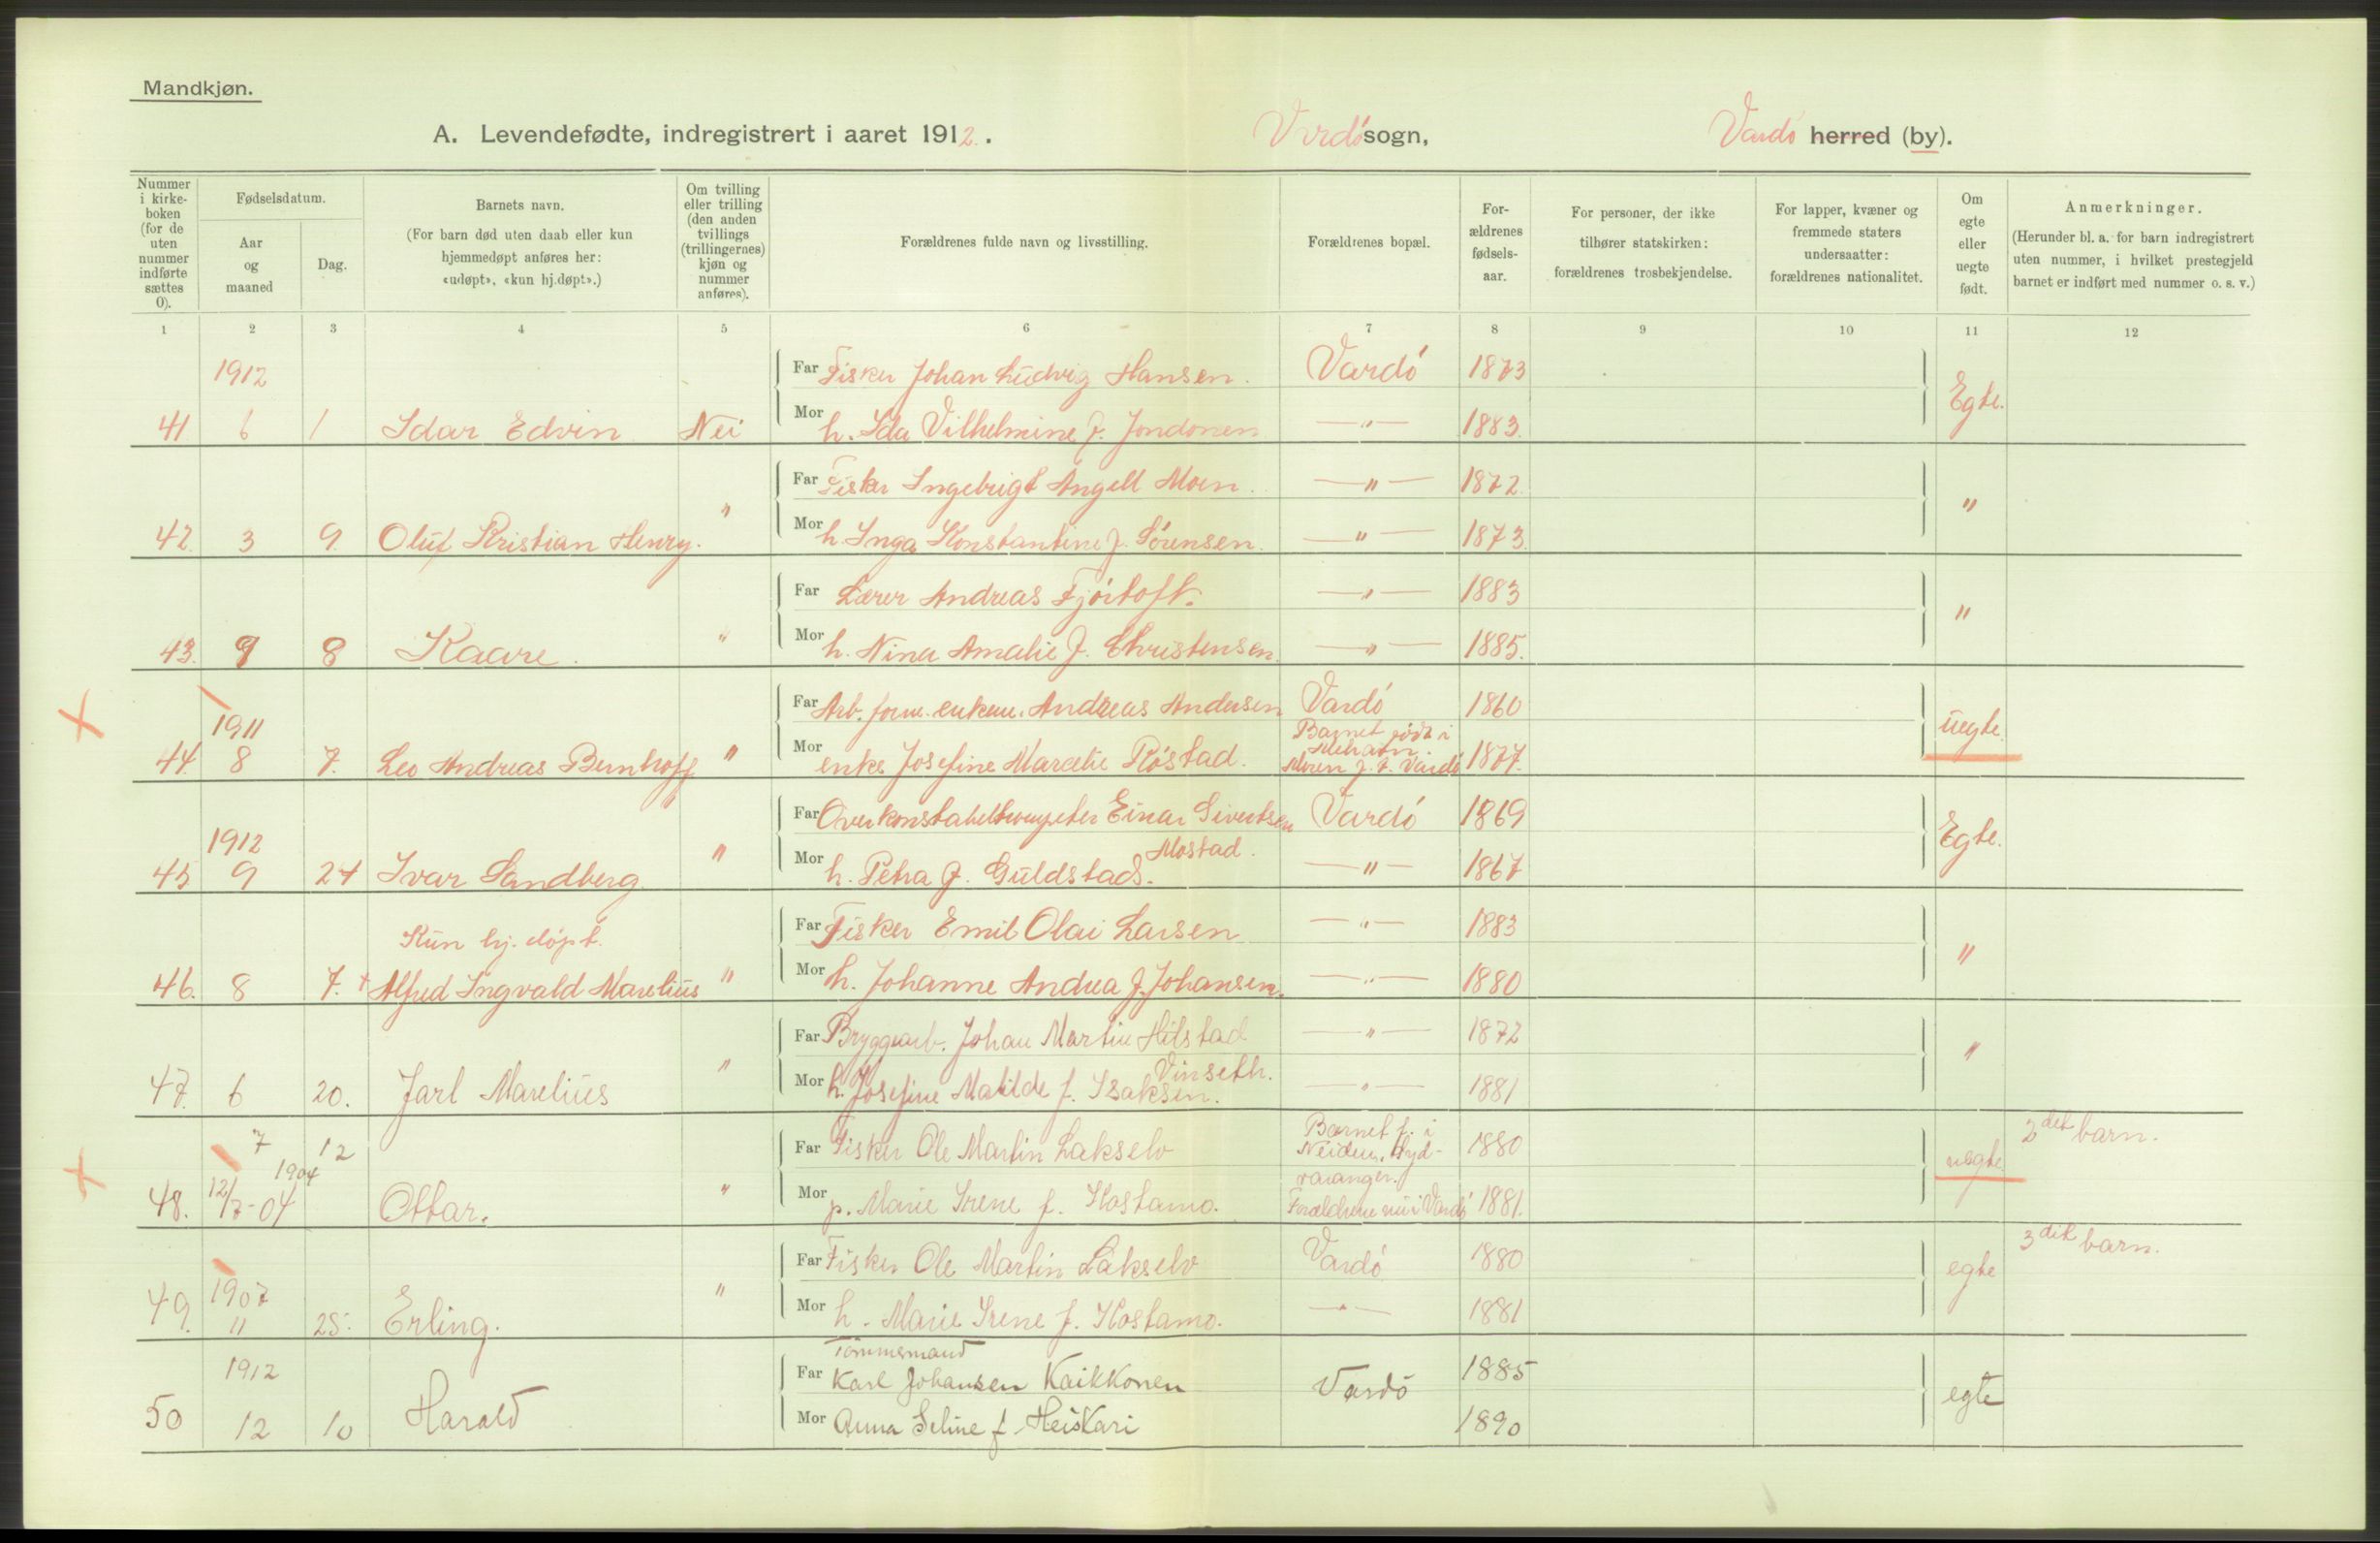 Mandkjøn.
A. Levendefødte, indregistrert i aaret 1912. Vardø sogn, Vardø herred (by).
Nummer i kirke-boken (for de uten nummer indførte sættes 0).
Fødselsdatum.
Aar og maaned
Dag.
Barnets navn.
(For barn død uten daab eller kun hjemmedøpt anføres her: «udøpt», «kun hj.døpt».)
Om tvilling eller trilling (den anden tvillings (trillingernes) kjøn og nummer anføres).
Forældrenes fulde navn og livsstilling.
Forældrenes bopæl.
For-ældrenes fødsels-aar.
For personer, der ikke tilhører statskirken: forældrenes trosbekjendelse.
For lapper, kvæner og fremmede staters undersaatter: forældrenes nationalitet.
Om egte eller uegte født.
Anmerkninger.
(Herunder bl. a. for barn indregistrert uten nummer, i hvilket prestegjeld barnet er indført med nummer o. s. v.)
1 2 3 4 5 6 7 8 9 10 11 12
1912 Far Fisker Johan Ludvig Hansen. Vardø 1873 Egte.
41 6 1 Idar Edvin Nei Mor h. Ida Vilhelmine f. Jondonen —"— 1883.
Far Fisker Ingebrigt Angell Moen. —"— 1872. "
42. 3 9. Oluf Kristian Henry. " Mor h. Inga Konstantine f. Sørensen. —"— 1873.
Far Lærer Andreas Fjørtoft. —"— 1883 "
43. 9 8 Kaare. " Mor h. Nina Amalie f. Christensen. —"— 1885.
1911 Far Arb. form. enkem. Andreas Andersen Vardø 1860 uegte.
44. 8 7. Leo Andreas Bernhoff " Mor enke Josefine Marcelie Røstad. Barnet født i Mehavn. Moren f. t. Vardø 1877.
1912 Far Overkonstabeltrompeter Einar Sivertsen Mostad. Vardø 1869 Egte.
45 9 24 Ivar Sandberg " Mor h. Petra f. Guldstad. —"— 1867
Kun hj. døpt. Far Fisker Emil Olai Larsen —"— 1883 "
46. 8 7. + Alfred Ingvald Marelius " Mor h. Johanne Andrea f. Johansen. —"— 1880
Far Bryggearb. Johan Martin Hilstad Vinseth. —"— 1872 "
47. 6 20. Jarl Marelius " Mor h. Josefine Matilde f. Isaksen. —"— 1881
7 12 1904 Far Fisker Ole Martin Lakselv Barnet f. i Neiden, Syd-varanger. 1880 uegte 2det barn.
48. 12/7-04 Ottar. " Mor p. Marie Irene f. Kostamo. Forældrene nu i Vardø 1881.
1907 Far Fisker Ole Martin Lakselv Vardø 1880 egte 3die barn.
49. 11 25. Erling. " Mor h. Marie Irene f. Kostamo. —"— 1881
1912 Tømmermand
Far Karl Johansen Kaikkonen Vardø 1885 egte
50 12 10 Harald Mor Anna Seline f. Heiskari 1890